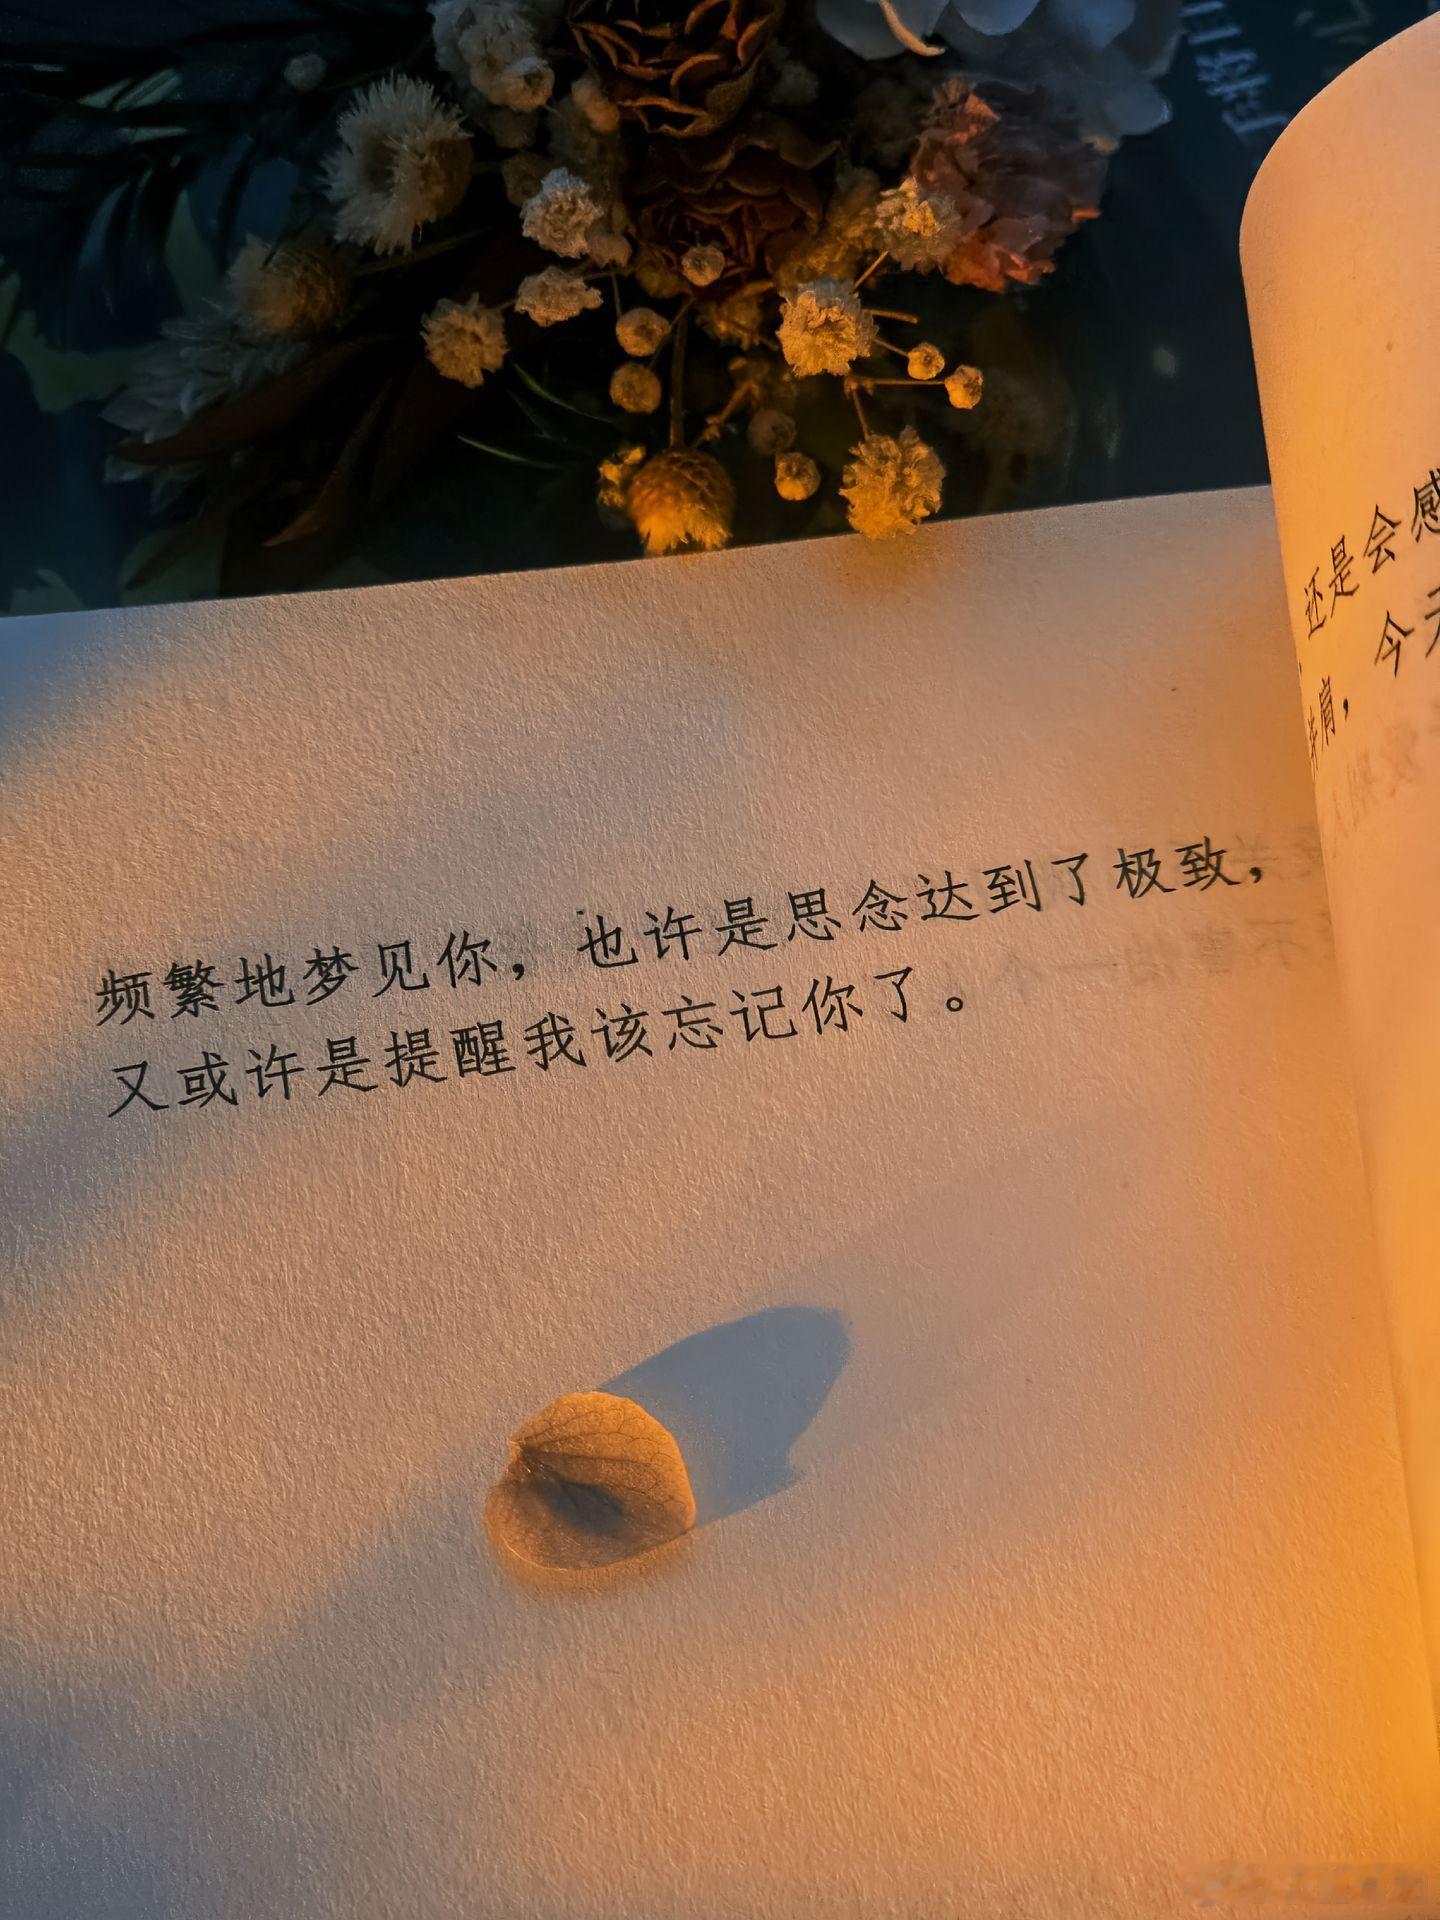 频繁地梦见你，也许是思念达到了极致，
又或许是提醒我该忘记你了。
还是会感
今天
并肩，